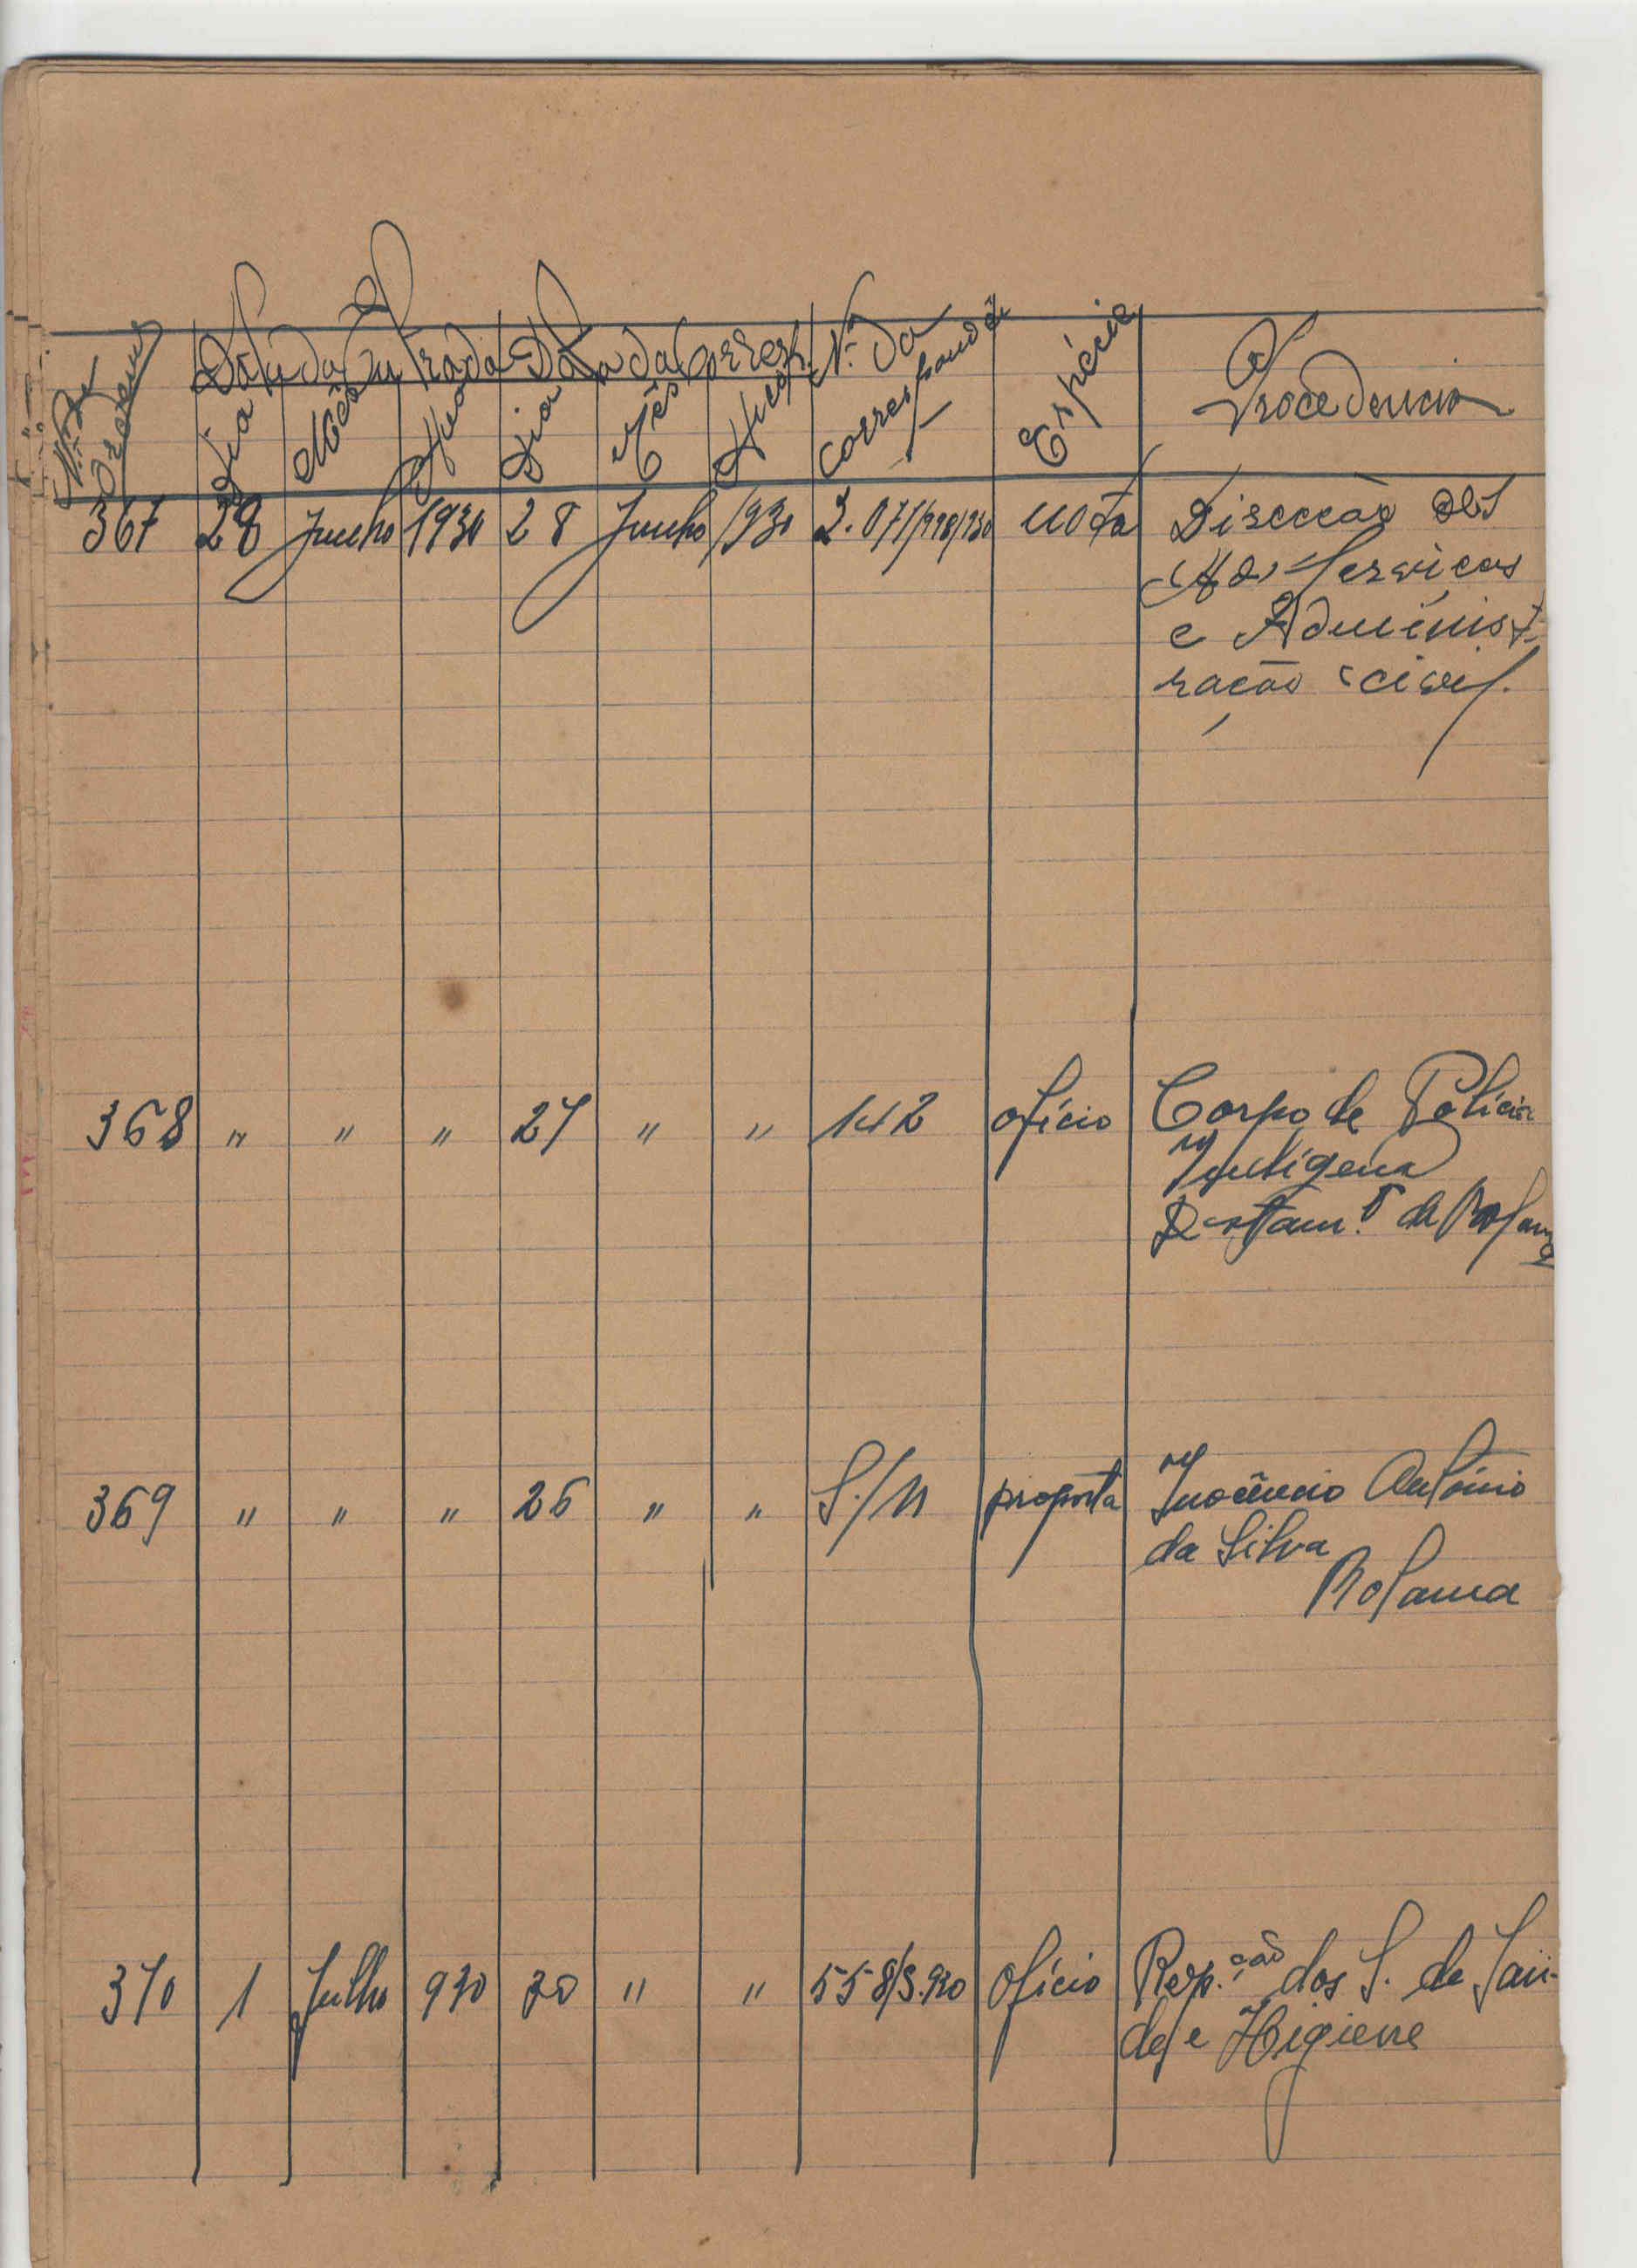 Nº de Ordem | Data da Entrada | Data da Corresp. | Nº da correspond. | Espécie | Procedencia
Dia | Mês | Ano | Dia | Mês | Ano
367 | 28 | Junho | 1930 | 28 | Junho | 1930 | 2.071/998/930 | nota | Direcção dos
Serviços
e Administ-
ração civil.
368 | " | " | " | 27 | " | " | 142 | ofício | Corpo de Polícia
Indígena
Destam.to de Bolama
369 | " | " | " | 26 | " | " | S/n | proposta | Inocêncio António
da Silva
Bolama
370 | 1 | Julho | 930 | 30 | " | " | 558/S.930 | Ofício | Rep.ção dos S. de Saú-
de e Higiene